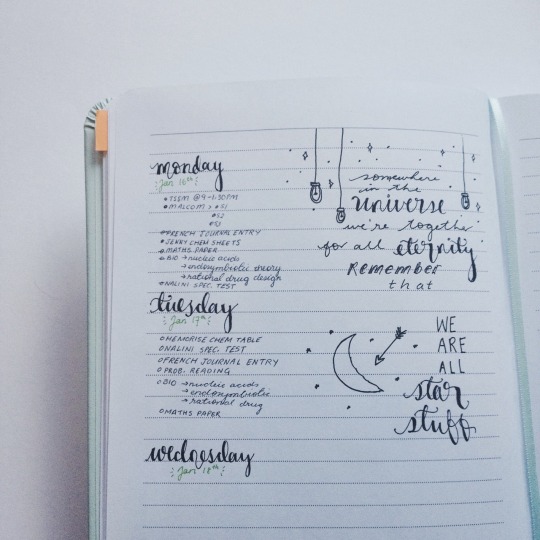 monday
Jan 16th
• TSSM @ 9-1:30PM
• MALCOM > • S1
• S2
• S3
• FRENCH JOURNAL ENTRY
• JENNY CHEM SHEETS
• MATHS PAPER
• BIO → nucleic acids
→ endosymbiotic theory
→ rational drug design
• NALINI SPEC. TEST
tuesday
Jan 17th
○ MEMORISE CHEM TABLE
○ NALINI SPEC. TEST
○ FRENCH JOURNAL ENTRY
○ PROB. READING
○ BIO → nucleic acids
→ endosymbiotic
→ rational drug
○ MATHS PAPER
wednesday
Jan 18th
somewhere
in the
universe
we're together
for all eternity
Remember
that
WE
ARE
ALL
star
stuff